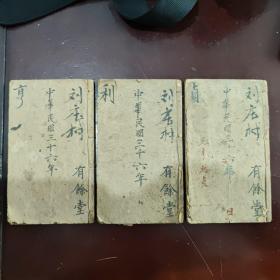 亨
中華民國三十六年
刘居村
有餘堂
利
中華民國三十六年
刘居村
有餘堂
貞
中華民國三十六年
刘居村
有餘堂